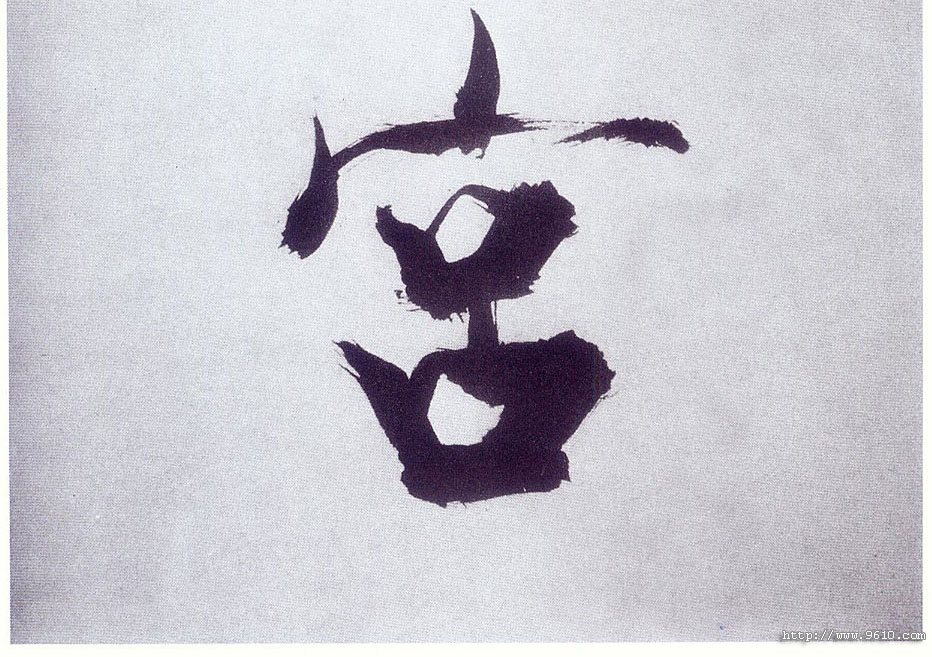 宮
http://www.9610.com